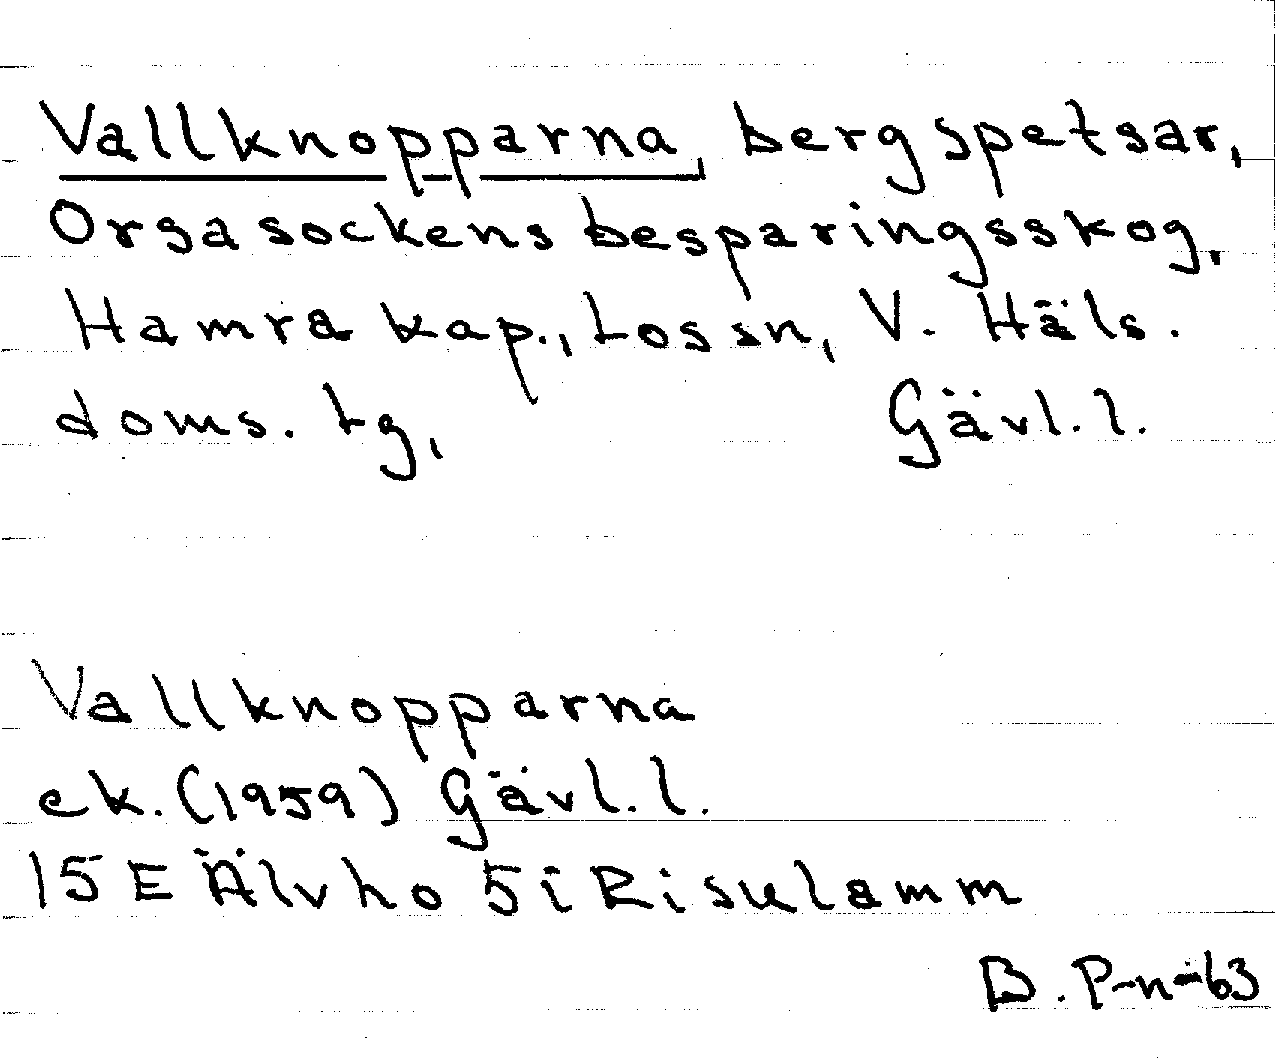 Vallknopparna, bergspetsar,
Orsa sockens besparingsskog,
Hamra kap., Los sn, V. Häls.
doms. tg, Gävl. l.
Vallknopparna
ek. (1959) Gävl. l.
15 E Älvho 5 i Risulamm
B. P-n-63